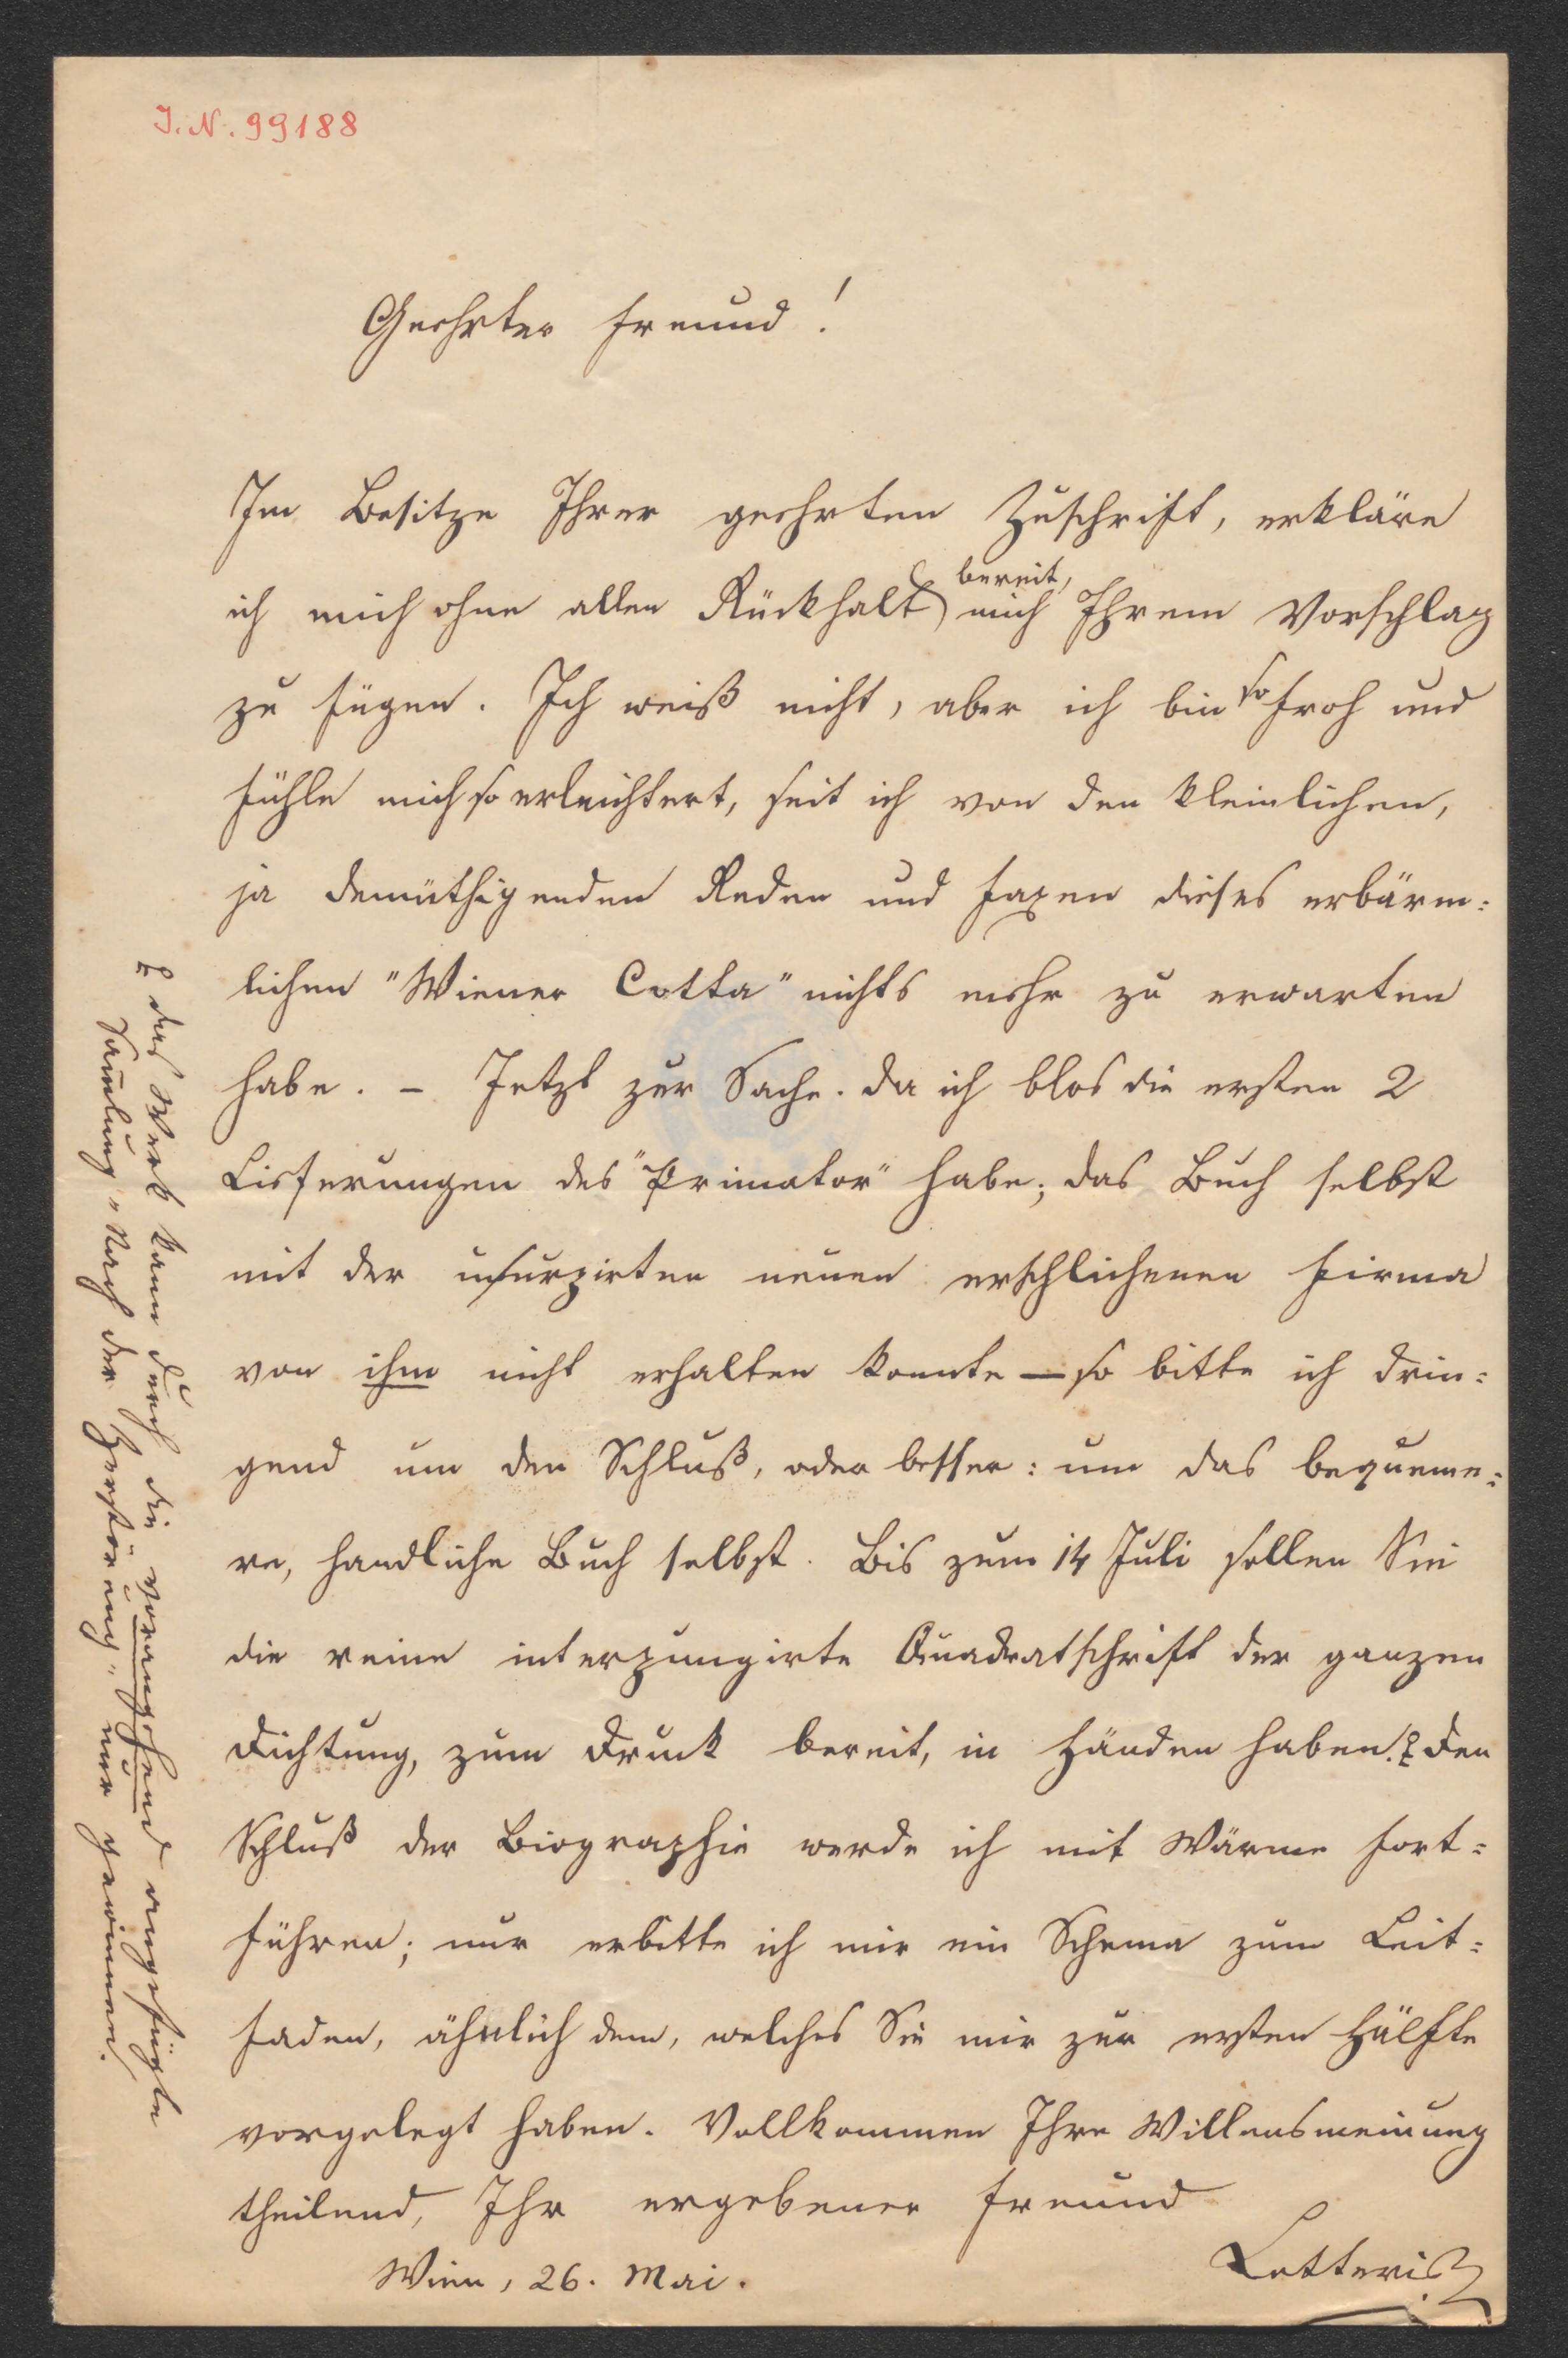 J. N. 99188
Geehrter Freund!
Im Besitze Ihrer geehrten Zuschrift, erkläre
ich mich ohne allen Rückhalt bereit, mich Ihrem Vorschlag
zu fügen. Ich weiß nicht, aber ich bin so froh und
fühle mich so erleichtert, seit ich von den kleinlichen,
ja demüthigenden Reden und Faxen dieses erbärm=
lichen "Wiener Cotta" nichts mehr zu erwarten
habe. – Jetzt zur Sache. Da ich blos die ersten 2
Lieferungen des "Primator" habe; das Buch selbst
mit der usurpirten neuen erschlichenen Firma
von ihm nicht erhalten konnte – so bitte ich drin=
gend um den Schluß, oder besser: um das bequeme=
re, handliche Buch selbst. Bis zum 14 Juli sollen Sie
die reine interpungirte Quadratschrift der ganzen
Dichtung, zum Druck bereit, in Händen haben. Den
Schluß der Biographie werde ich mit Wärme fort=
führen; nur erbitte ich mir ein Schema zum Leit=
faden, ähnlich dem, welches Sie mir zur ersten Hälfte
vorgelegt haben. Vollkommen Ihre Willensmeinung
theilend, Ihr ergebener Freund
Letteris
Wien, 26. Mai.
das Werk kann durch die vorangehend angefügte
Samlung "Nach der Zerstörung" nur gewinnen.